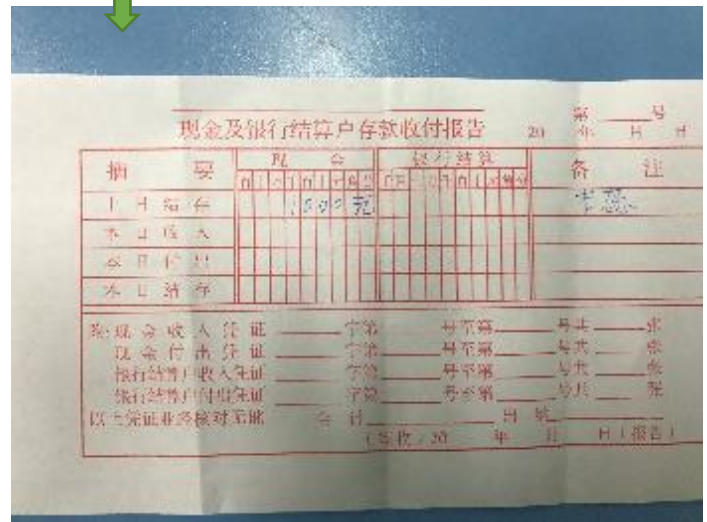 第 号
现金及银行结算户存款收付报告 20 年 月 日
摘 要 现 金 银行结算 备 注
百十万千百十元角分 百十万千百十元角分
上日结存 1500元
本日收入
本日付出
本日结存
附:现金收入凭证 字第 号至第 号共 张
现金付出凭证 字第 号至第 号共 张
银行结算户收入凭证 字第 号至第 号共 张
银行结算户付出凭证 字第 号至第 号共 张
以上凭证业经核对无讹 会计 出纳
(签收)20 年 月 日(报告)